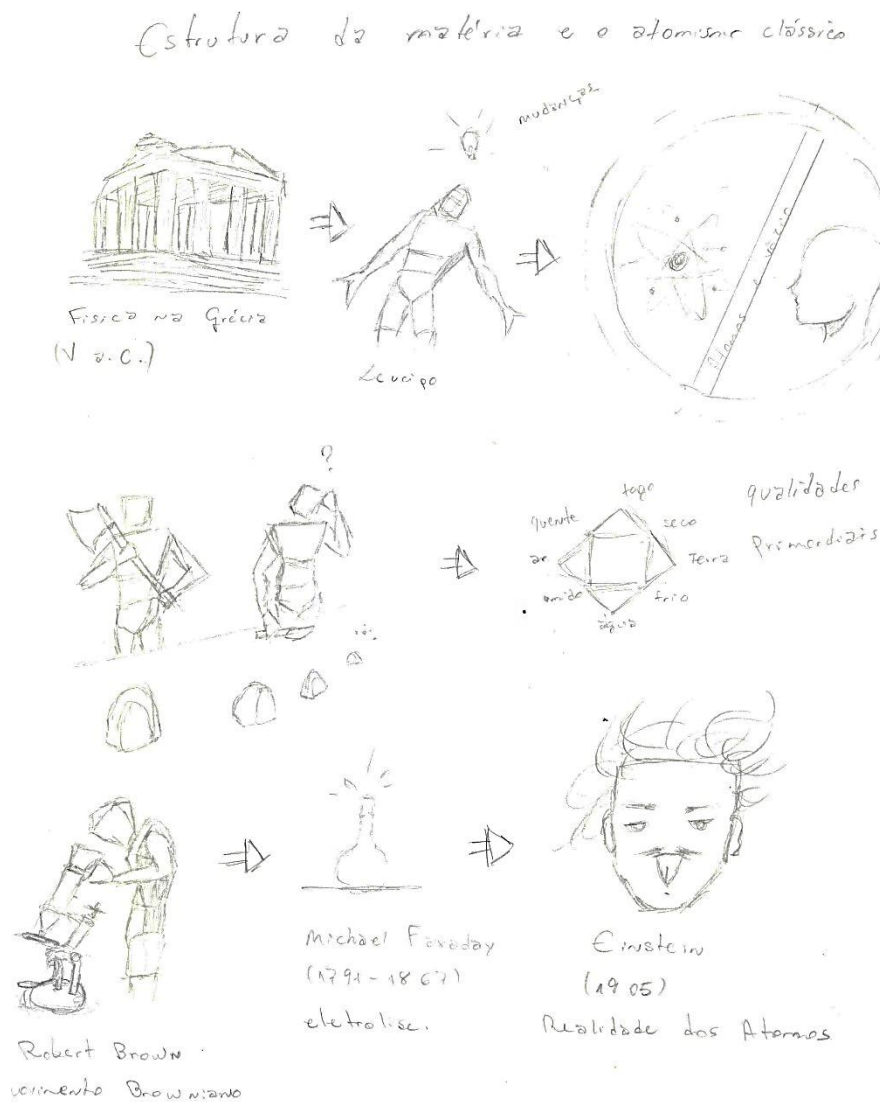 Estrutura da matéria e o atomismo clássico
mudanças
Física na Grécia
(V a.C.)
Leucipo
Átomos e vázio
?
fogo
quente
seco
ar
Terra
umido
frio
água
qualidades
Primordiais
Robert Brown
movimento Browniano
Michael Faraday
(1791-1867)
eletrolise.
Einstein
(1905)
Realidade dos Átomos